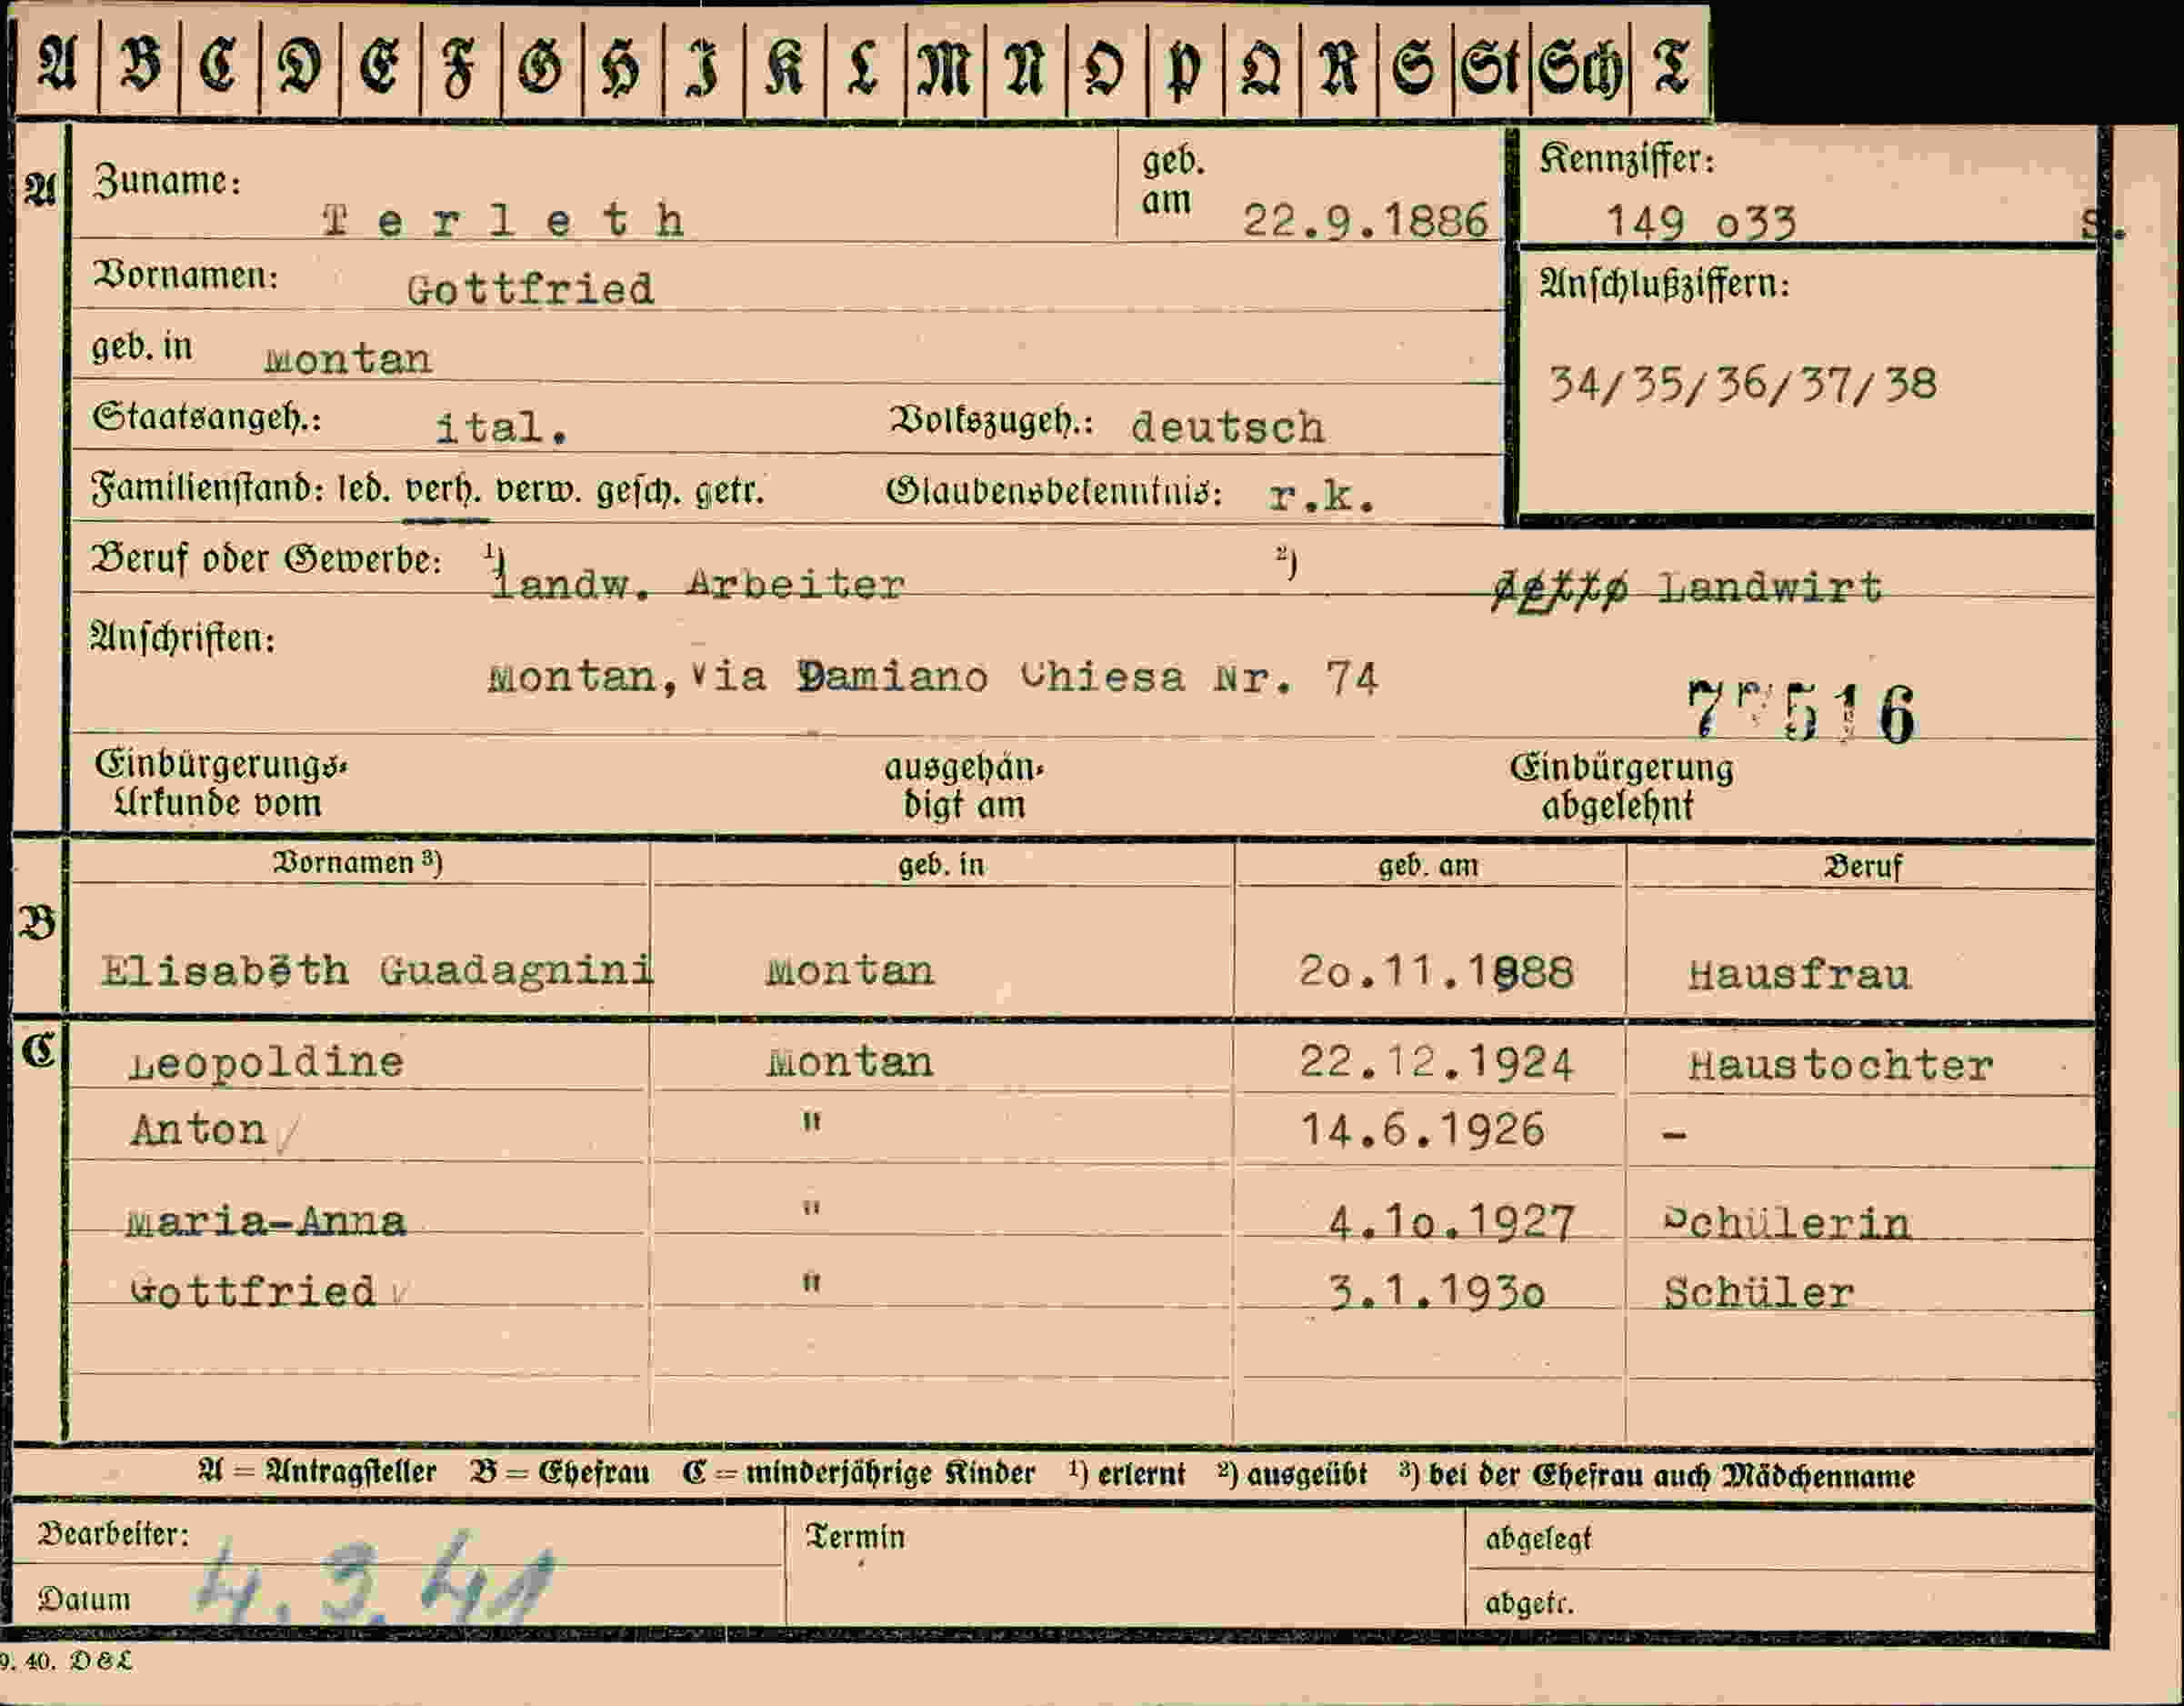 A B C D E F G H I K L M N O P Q R S St Sch T
A Zuname: Terleth geb. am 22.9.1886 Kennziffer: 149 o33 S.
Vornamen: Gottfried Anschlußziffern:
geb. in Montan 34/35/36/37/38
Staatsangeh.: ital. Volkszugeh.: deutsch
Familienstand: led. verh. verw. gesch. getr. Glaubensbekenntnis: r.k.
Beruf oder Gewerbe: 1) landw. Arbeiter 2) detto Landwirt
Anschriften:
Montan, Via Damiano Chiesa Nr. 74
Einbürgerungs- ausgehän- Einbürgerung
Urkunde vom digt am abgelehnt
Vornamen 3) geb. in geb. am Beruf
B
Elisabeth Guadagnini Montan 2o.11.1888 Hausfrau
C Leopoldine Montan 22.12.1924 Haustochter
Anton " 14.6.1926 -
Maria-Anna " 4.1o.1927 Schülerin
Gottfried " 3.1.193o Schüler
A = Antragsteller B = Ehefrau C = minderjährige Kinder 1) erlernt 2) ausgeübt 3) bei der Ehefrau auch Mädchenname
Bearbeiter: Termin abgelegt
Datum 4.3.41 abgetr.
9. 40. D & L